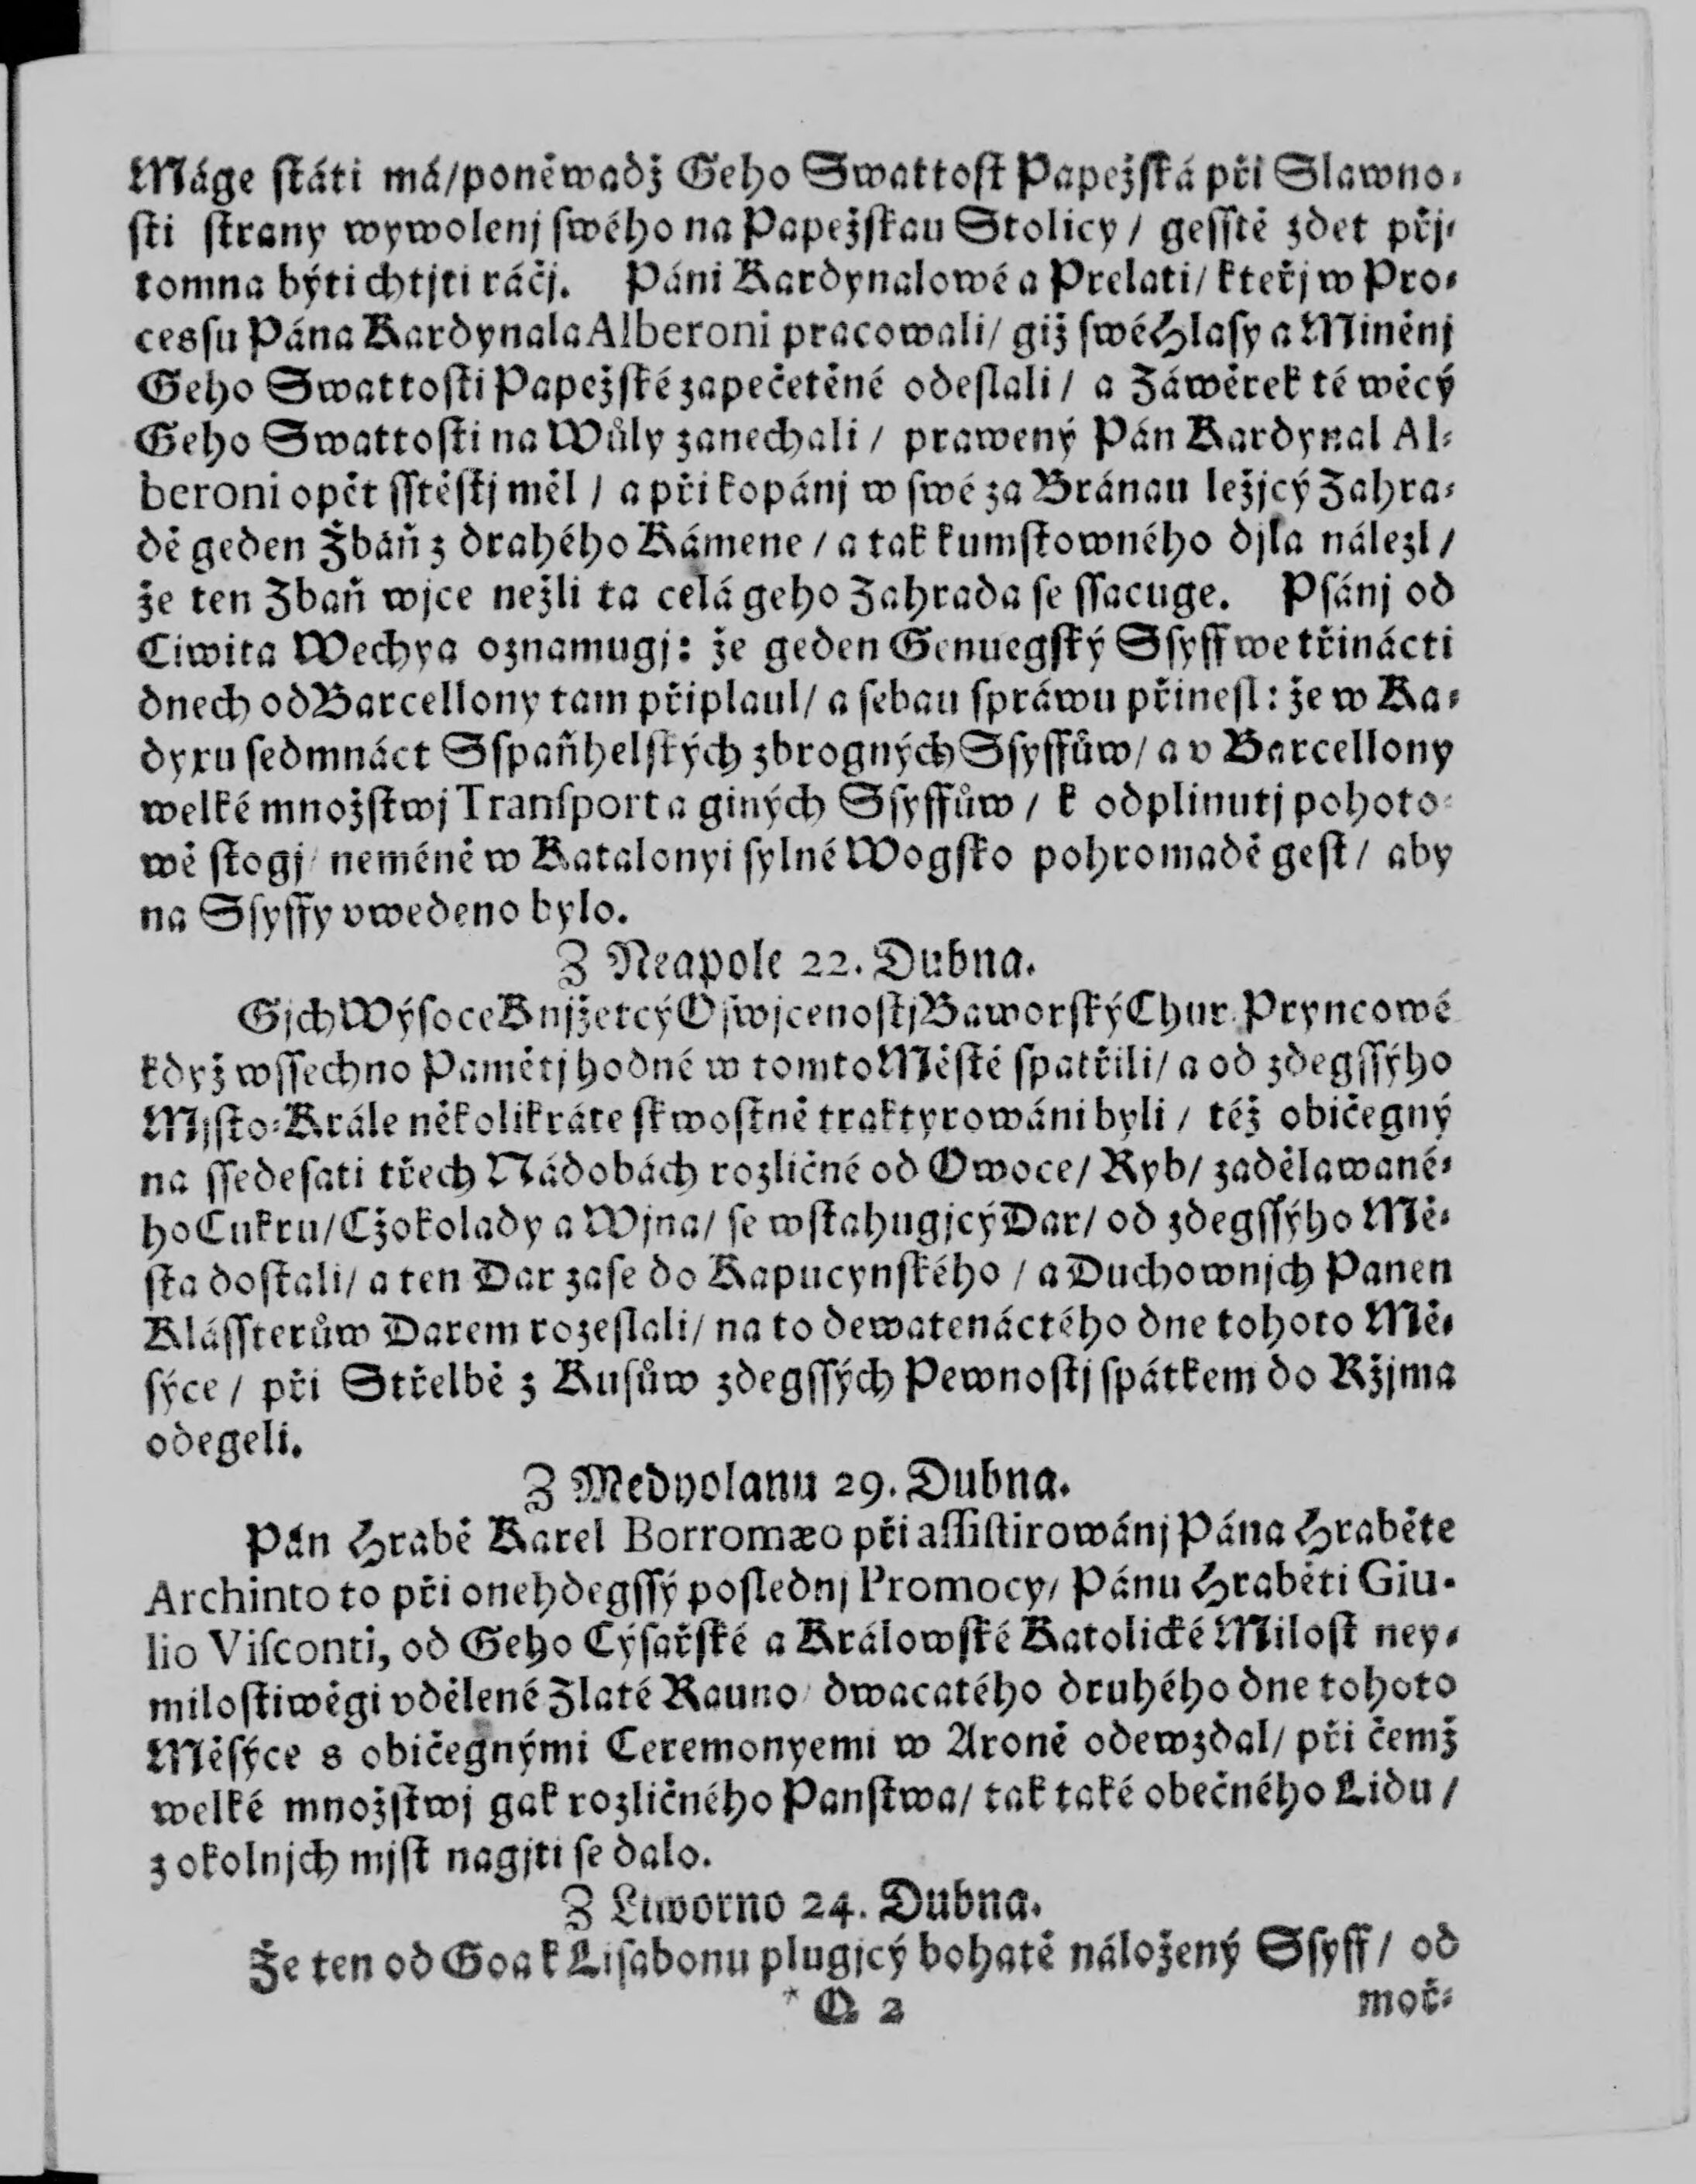 Máge ſtáti má/poněwadž Geho Swattoſt Papežſká při Slawno-
ſti ſtrany wywolenj ſwého na Papežſkau Stolicy / geſſtě zdet přj-
tomna býti chtjti ráčj. Páni Kardynalowé a Prelati/ kteřj w Pro-
cesſu Pána Kardynala Alberoni pracowali/ giž ſwé Hlaſy a Miněnj
Geho Swattoſti Papežſké zapečetěné odeſlali / a Záwěrek té wěcý
Geho Swattoſti na Wůly zanechali / prawený Pán Kardynal Al-
beroni opět ſſtěſtj měl / a při kopánj w ſwé za Bránau ležjcý Zahra-
dě geden Žbáň z drahého Kámene / a tak kumſtowného djla nálezl /
že ten Zbaň wjce nežli ta celá geho Zahrada ſe ſſacuge. Pſánj od
Ciwita Wechya oznamugj: že geden Genuegſký Sſyff we třinácti
dnech od Barcellony tam připlaul/ a ſebau ſpráwu přineſl: že w Ka-
dyxu ſedmnáct Sſpaňhelſkých zbrogných Sſyffůw/ a v Barcellony
welké množſtwj Tranſport a giných Sſyffůw / k odplinutj pohoto-
wě ſtogj/ neméně w Katalonyi ſylné Wogſko pohromadě geſt/ aby
na Sſyffy vwedeno bylo.
Z Neapole 22. Dubna.
Gjch Wýſoce Knjžetcý Oſwjcenoſtj Baworſký Chur-Pryncowé
když wſſechno Pamětj hodné w tomto Měſtě ſpatřili/ a od zdegſſýho
Mjſto-Krále několikráte ſkwoſtně traktyrowáni byli / též običegný
na ſſedeſati třech Nádobách rozličné od Owoce/ Ryb/ zadělawané-
ho Cukru/ Cžokolady a Wjna/ ſe wſtahugjcý Dar/ od zdegſſýho Mě-
ſta doſtali/ a ten Dar zaſe do Kapucynſkého / a Duchownjch Panen
Kláſſterůw Darem rozeſlali/ na to dewatenáctého dne tohoto Mě-
ſýce / při Střelbě z Kuſůw zdegſſých Pewnoſtj ſpátkem do Ržjma
odegeli.
Z Medyolanu 29. Dubna.
Pán Hrabě Karel Borromæo při aſſiſtirowánj Pána Hraběte
Archinto to při onehdegſſý poſlednj Promocy/ Pánu Hraběti Giu-
lio Viſconti, od Geho Cýſařſké a Králowſké Katolické Miloſt ney-
miloſtiwěgi vdělené Zlaté Rauno/ dwacatého druhého dne tohoto
Měſýce s običegnými Ceremonyemi w Aroně odewzdal/ při čemž
welké množſtwj gak rozličného Panſtwa/ tak také obečného Lidu /
z okolnjch mjſt nagjti ſe dalo.
Z Liworno 24. Dubna.
Že ten od Goa k Liſabonu plugjcý bohatě náložený Sſyff / od
* Q 2 moč-